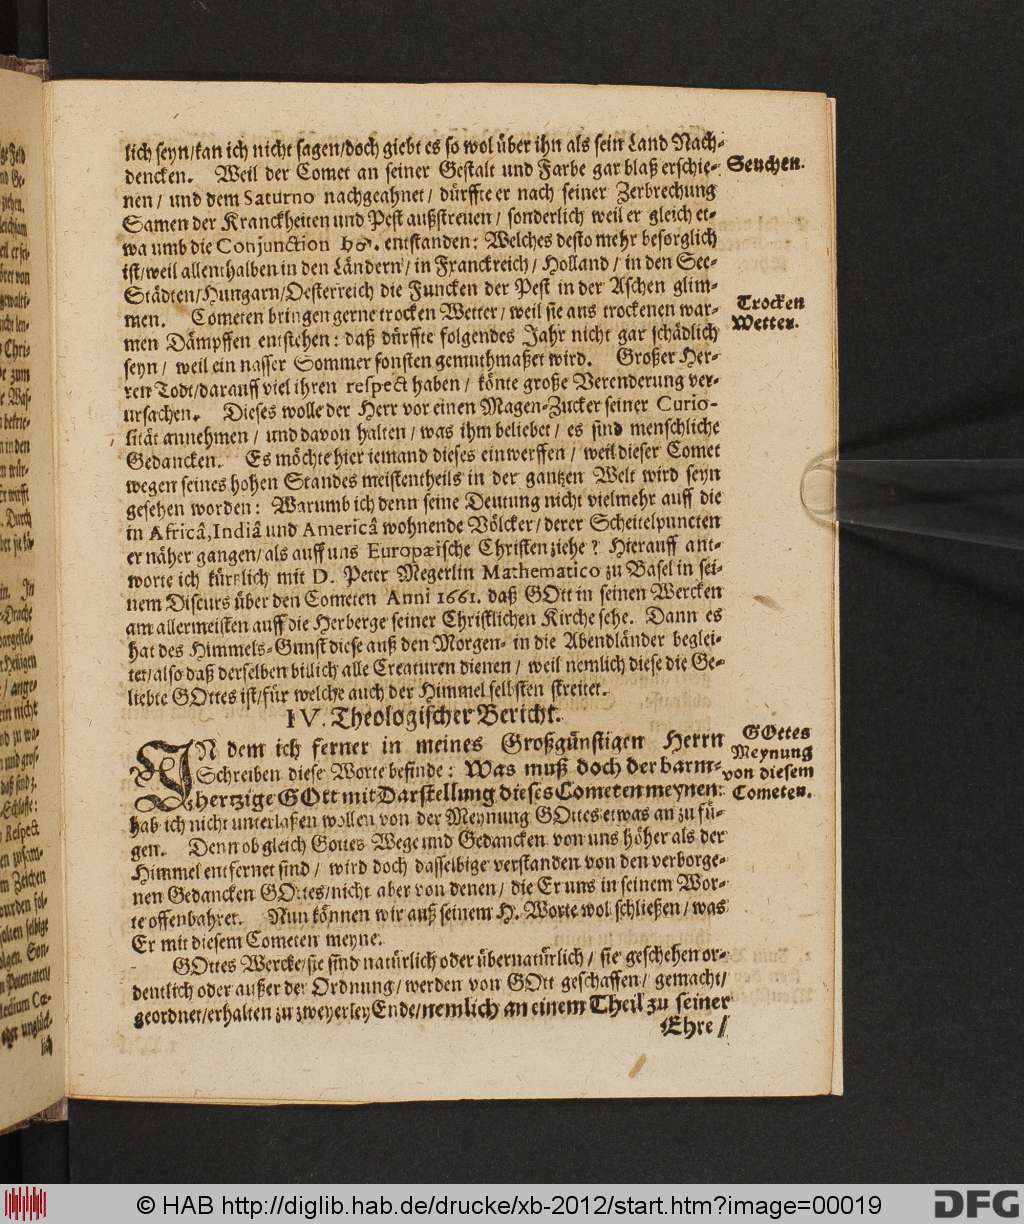 lich seyn/kan ich nicht sagen/doch giebt es so wol über ihn als sein Land Nach-
dencken. Weil der Comet an seiner Gestalt und Farbe gar blaß erschie-
nen / und dem Saturno nachgeahnet / dürffte er nach seiner Zerbrechung
Samen der Kranckheiten und Pest außstreuen / sonderlich weil er gleich et-
wa umb die Conjunction ♄♂. entstanden: Welches desto mehr besorglich
ist/weil allenthalben in den Ländern / in Franckreich / Holland / in den See-
Städten/Hungarn/Oesterreich die Funcken der Pest in der Aschen glim-
men. Cometen bringen gerne trocken Wetter / weil sie aus trockenen war-
men Dämpffen entstehen: daß dürffte folgendes Jahr nicht gar schädlich
seyn / weil ein nasser Sommer sonsten gemuthmaßet wird. Großer Her-
ren Todt/darauff viel ihren respect haben / könte große Verenderung ver-
ursachen. Dieses wolle der Herr vor einen Magen-Zucker seiner Curio-
sität annehmen / und davon halten / was ihm beliebet / es sind menschliche
Gedancken. Es möchte hier iemand dieses einwerffen / weil dieser Comet
wegen seines hohen Standes meistentheils in der gantzen Welt wird seyn
gesehen worden: Warumb ich denn seine Deutung nicht vielmehr auff die
in Africâ, Indiâ und Americâ wohnende Völcker / derer Scheitelpuncten
er näher gangen/als auff uns Europæische Christen ziehe? Hierauff ant-
worte ich kürtzlich mit D. Peter Megerlin Mathematico zu Basel in sei-
nem Discurs über den Cometen Anni 1661. daß GOtt in seinen Wercken
am allermeisten auff die Herberge seiner Christlichen Kirche sehe. Dann es
hat des Himmels-Gunst diese auß den Morgen- in die Abendländer beglei-
tet/also daß derselben billich alle Creaturen dienen / weil nemlich diese die Ge-
liebte GOttes ist/für welche auch der Himmel selbsten streitet.
IV. Theologischer Bericht.
IN dem ich ferner in meines Großgünstigen Herrn
Schreiben diese Worte befinde: Was muß doch der barm-
hertzige GOtt mit Darstellung dieses Cometen meynen:
hab ich nicht unterlaßen wollen von der Meynung GOttes etwas an zu fü-
gen. Denn ob gleich Gottes Wege und Gedancken von uns höher als der
Himmel entfernet sind / wird doch dasselbige verstanden von den verborge-
nen Gedancken GOttes/nicht aber von denen / die Er uns in seinem Wor-
te offenbahret. Nun können wir auß seinem H. Worte wol schließen / was
Er mit diesem Cometen meyne.
GOttes Wercke/sie sind natürlich oder übernatürlich / sie geschehen or-
dentlich oder außer der Ordnung / werden von GOtt geschaffen / gemacht /
geordnet/erhalten zu zweyerley Ende/nemlich an einem Theil zu seiner
Ehre /
Seuchen.
Trocken
Wetter.
GOttes
Meynung
von diesem
Cometen.
© HAB http://diglib.hab.de/drucke/xb-2012/start.htm?image=00019
DFG